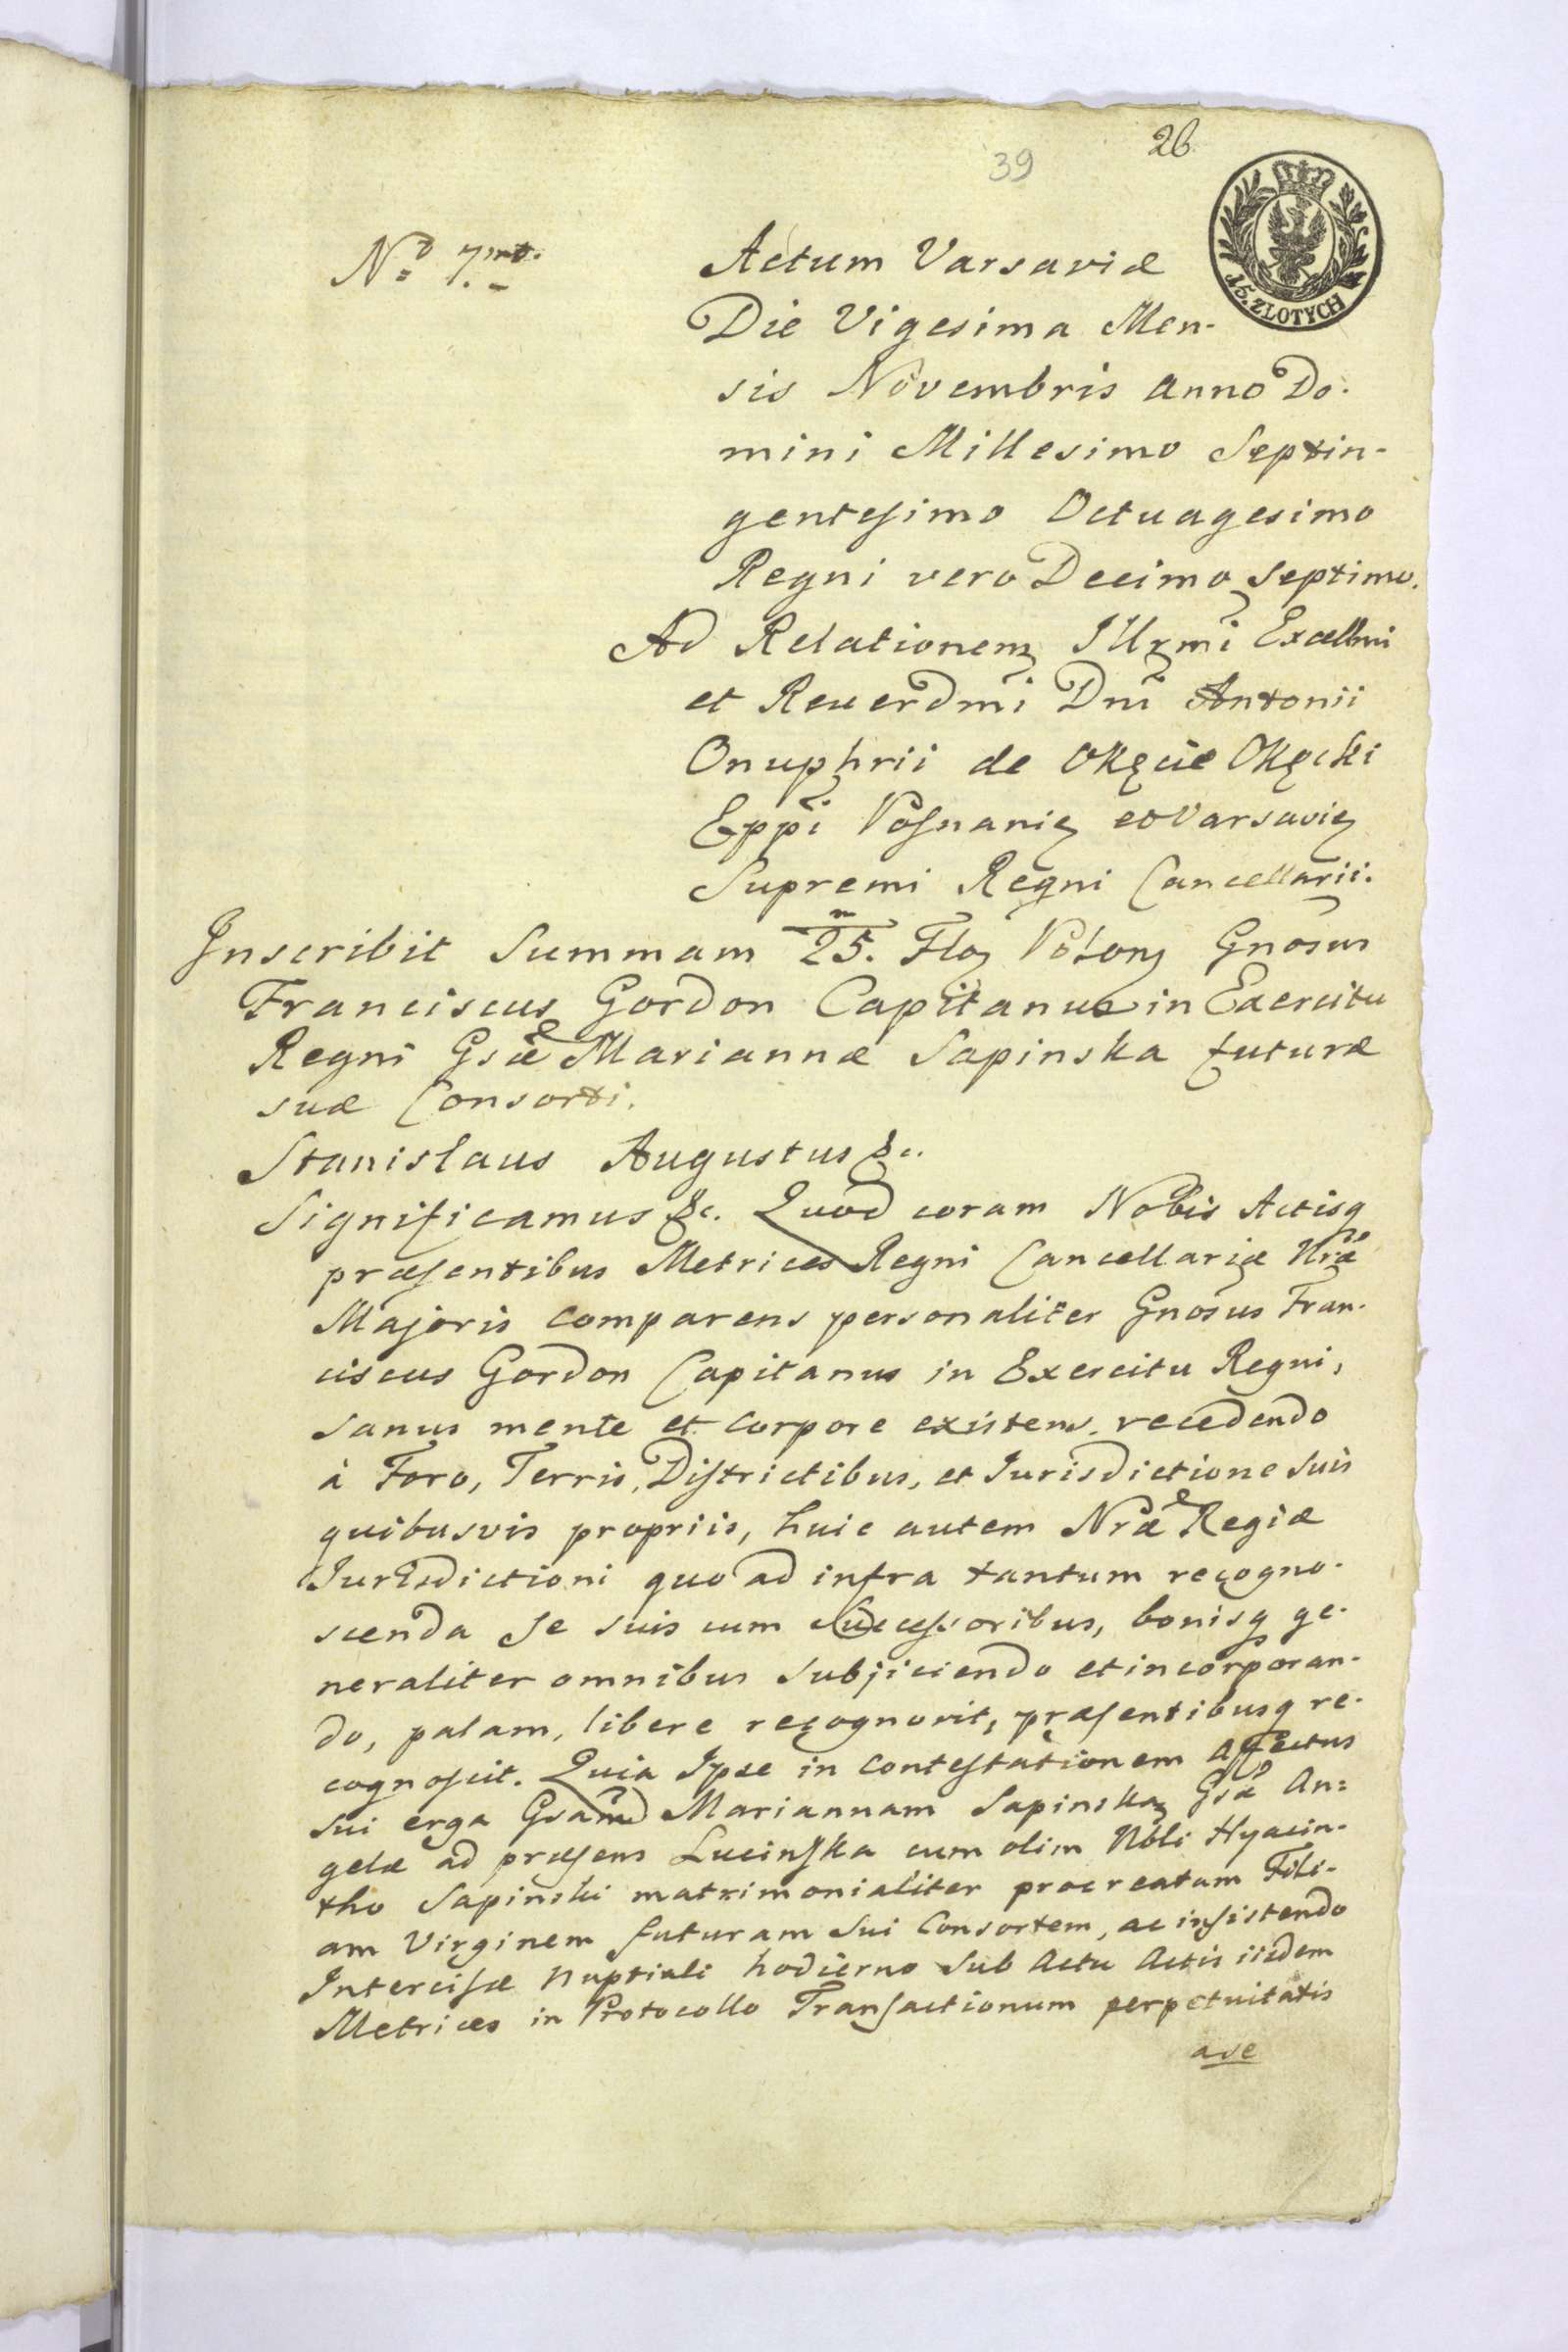 26
39
15. ZLOTYCH
No 7mo.
Actum Varsaviæ
Die Vigesima Men-
sis Novembris Anno Do-
mini Millesimo Septin-
gentesimo Octuagesimo
Regni vero Decimo septimo.
Ad Relationem Illxmi Excellmi
et Reuerdmi Dni Antonii
Onuphrii de Okęcie Okęcki
Eppi Posnanię et Varsavię
Supremi Regni Cancellarii.
Inscribit Summam 25. Flo Polon Gnosus
Franciscus Gordon Capitanus in Exercitu
Regni Gsæ Mariannæ Sapinska futuræ
suæ Consorti.
Stanislaus Augustus &c.
Significamus &c. Quod coram Nobis Actisq
præsentibus Metrices Regni Cancellariæ Nræ
Majoris comparens personaliter Gnosus Fran-
ciscus Gordon Capitanus in Exercitu Regni,
sanus mente et corpore existens, recedendo
à Foro, Terris, Districtibus, et Jurisdictione suis
quibusvis propriis, huic autem Nræ Regiæ
Jurisdictioni quo ad infra tantum recogno-
scenda se suis cum Successoribus, bonisq ge-
neraliter omnibus subjiciendo et incorporan-
do, palam, libere recognovit, præsentibusq re-
cognoscit. Quia Ipse in contestationem affectus
sui erga Gsam Mariannam Sapinska Gsa An=
gelæ ad præsens Lucinska cum olim Nbli Hyacin-
tho Sapinski matrimonialiter procreatam Fili-
am Virginem futuram sui Consortem, ac insistendo
Intercisæ Nuptiali hodierno sub Actu Actis iisdem
Metrices in Protocollo Transactionum perpetuitatis
ave